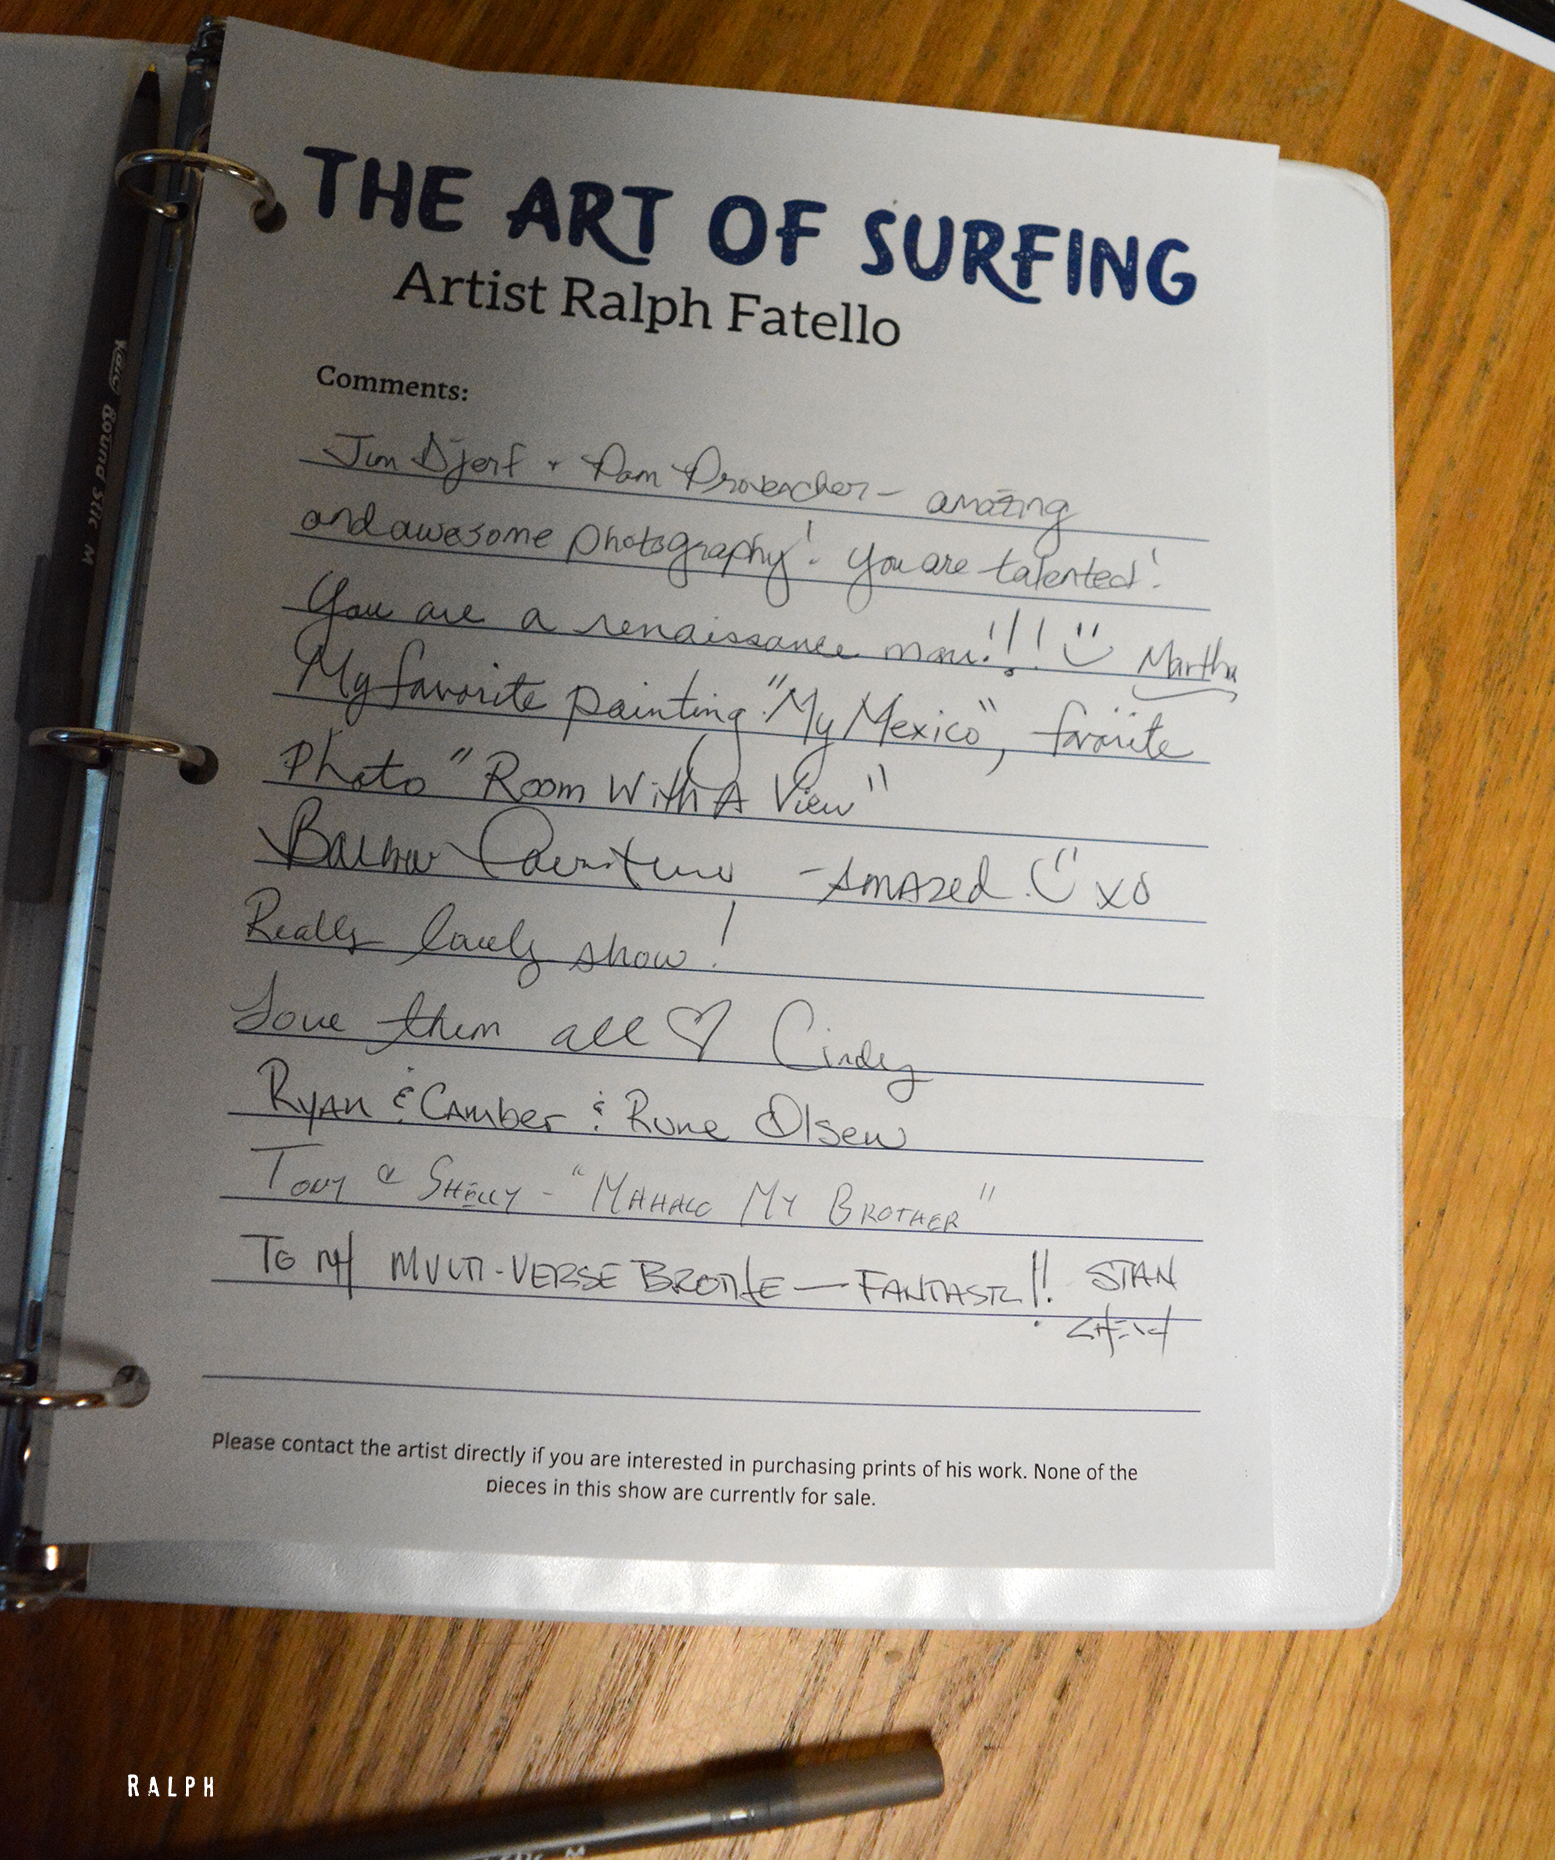 THE ART OF SURFING
Artist Ralph Fatello
Comments:
Jim Djerf + Pam Provencher - amazing
and awesome photography! You are talented!
You are a renaissance man!!! Martha
My favorite painting "My Mexico", favorite
Photo "Room With A View"
- AMAZED xo
Really lovely show!
Love them all ♡ Cindy
RYAN & CAMber & Rune Olsen
TONY & SHELLY - "MAHALO MY BROTHER"
TO MY MULTI-VERSE BROTHE — FANTASTC!! STAN
Please contact the artist directly if you are interested in purchasing prints of his work. None of the
pieces in this show are currently for sale.
Round Stic M
RALPH